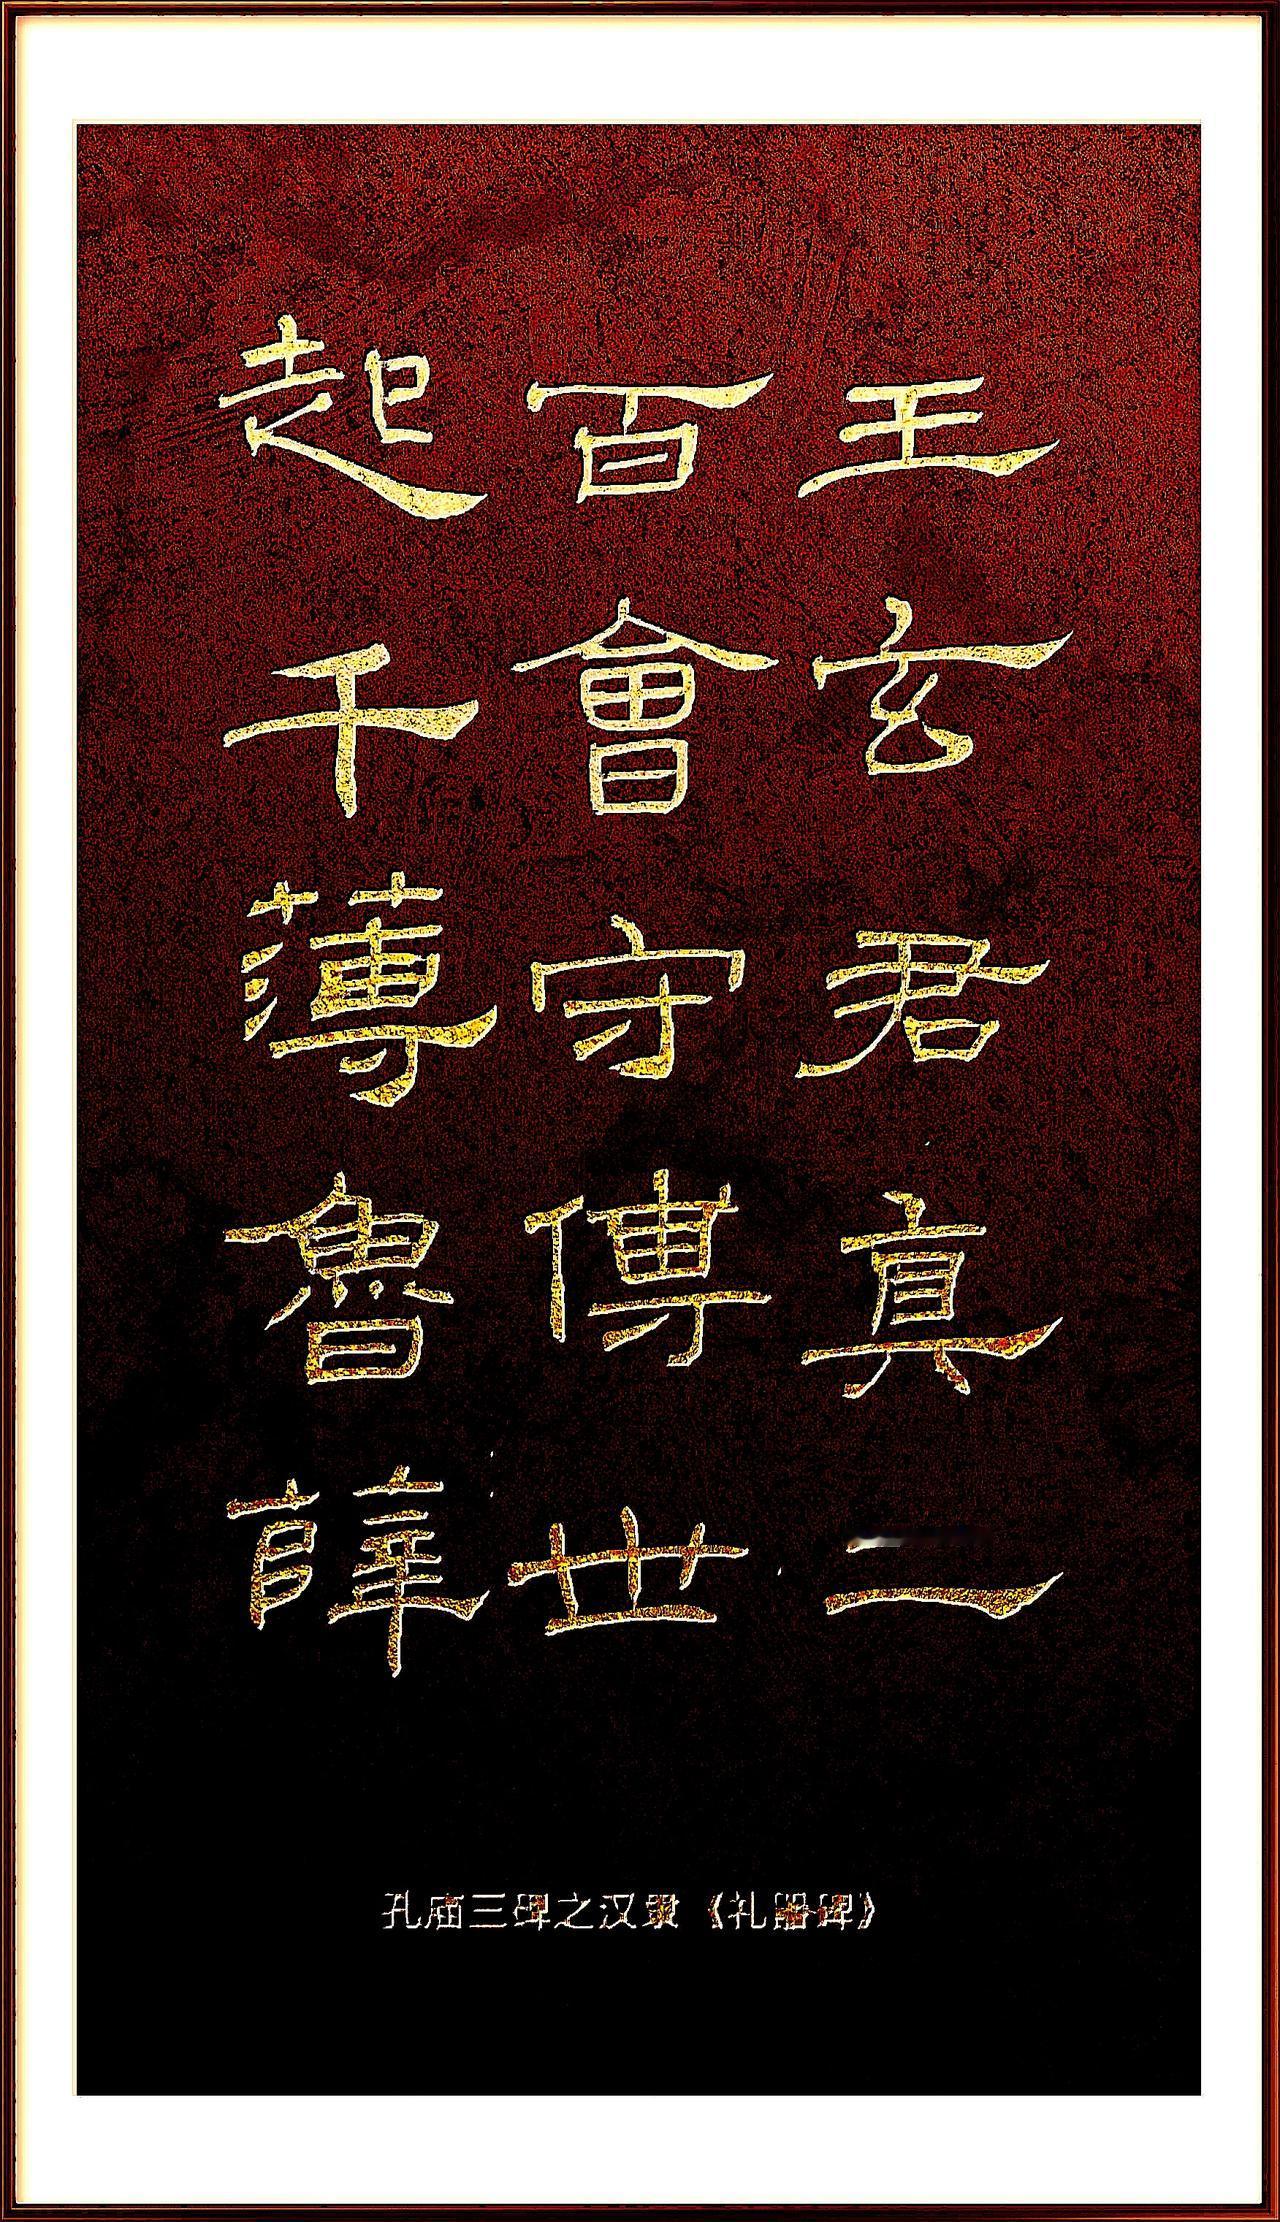 王玄君真二
百會守傳世
起千薄魯薛
孔庙三碑之汉隶《礼器碑》